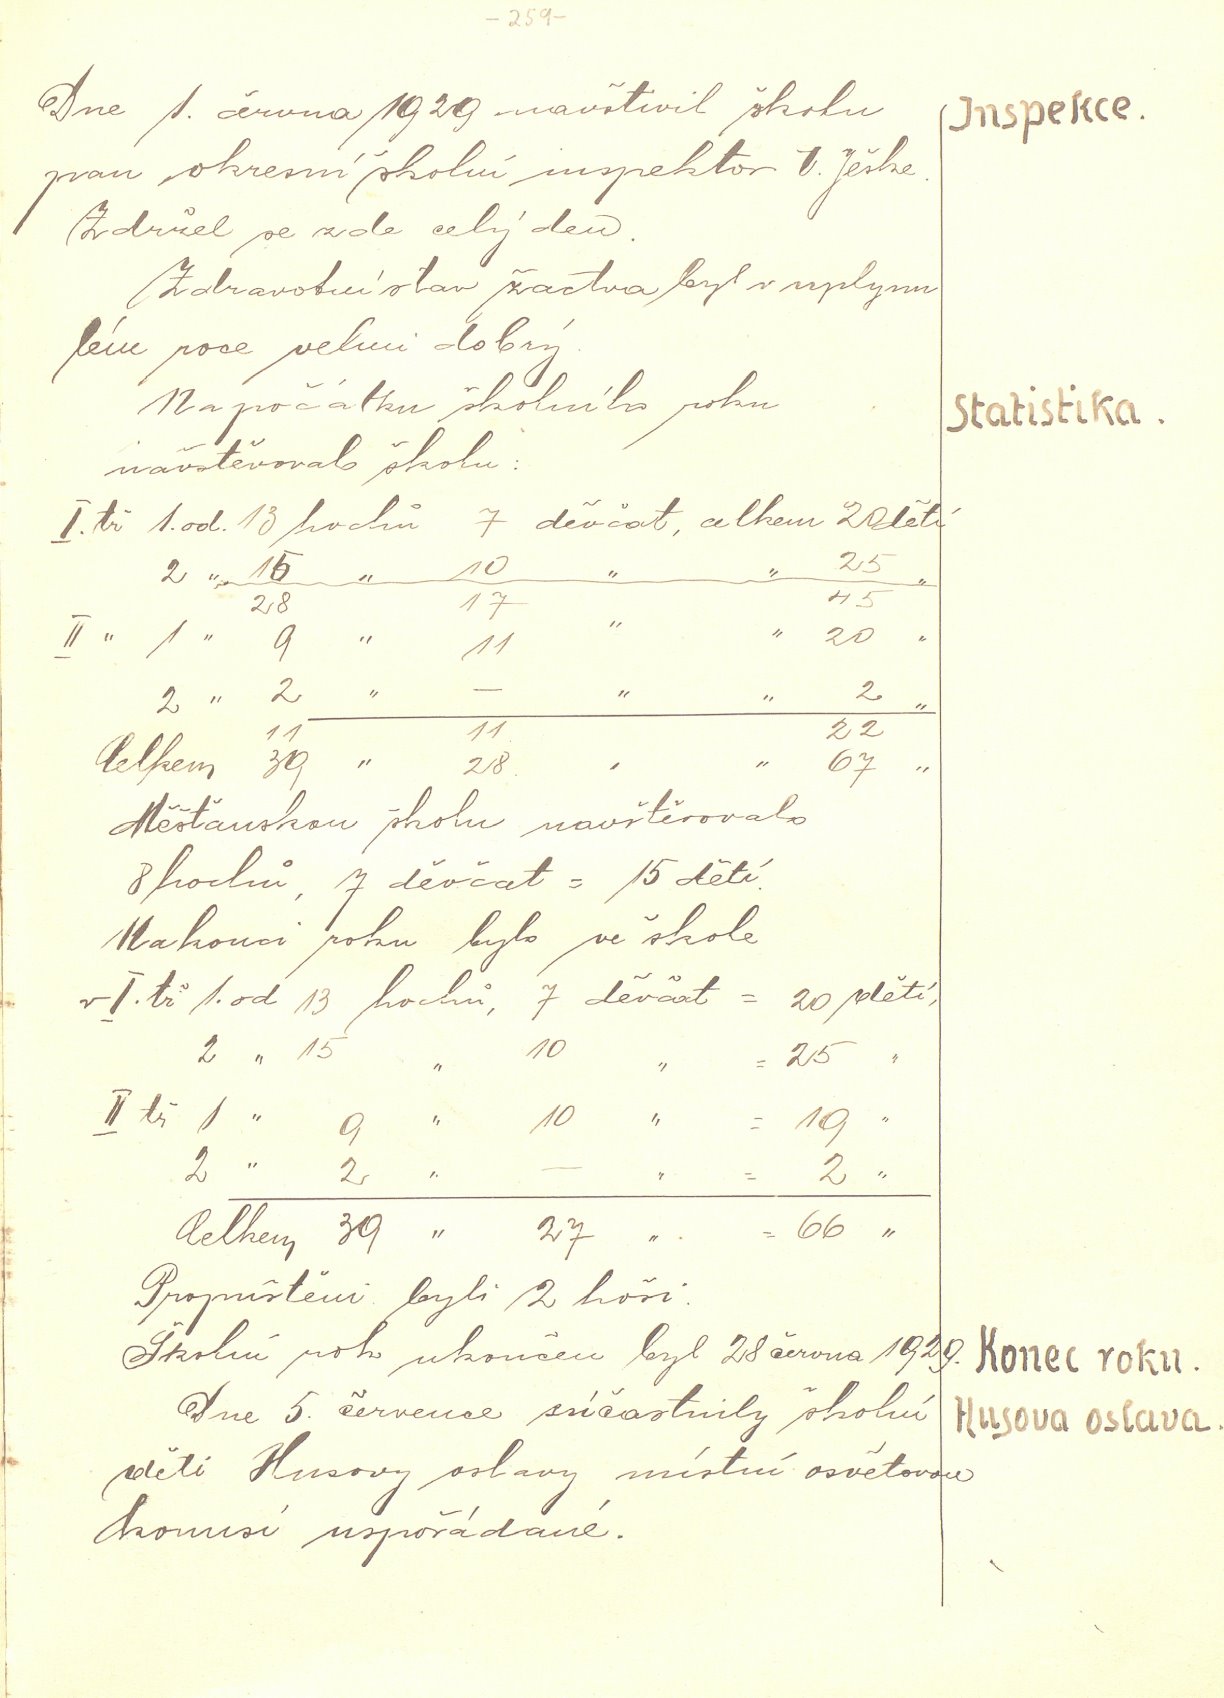 - 259 -
Dne 1. června 1929 navštivil školu
Inspekce.
pan okresní školní inspektor V. Ješke.
Zdržel se zde celý den.
Zdravotní stav žactva byl v uplynu
lém roce velmi dobrý.
Na počátku školního roku
Statistika.
navštěvovalo školu:
I. tř 1. od. 13 hochů 7 děvčat, celkem 20 dětí
2 " 15 " 10 " " 25 "
28 17 45
II " 1 " 9 " 11 " " 20 "
2 " 2 " — " " 2 "
11 11 22
Celkem 39 " 28 " " 67 "
Měšťanskou školu navštěvovalo
8 hochů, 7 děvčat = 15 dětí.
Na konci roku bylo ve škole
v I. tř 1. od 13 hochů, 7 děvčat = 20 dětí,
2 " 15 " 10 " = 25 "
II tř 1 " 9 " 10 " = 19 "
2 " 2 " — " = 2 "
Celkem 39 " 27 " = 66 "
Propuštěni byli 2 hoši.
Školní rok ukončen byl 28 června 1929.
Konec roku.
Dne 5. července súčastnily školní
Husova oslava.
děti Husovy oslavy místní osvětovou
komisí uspořádané.